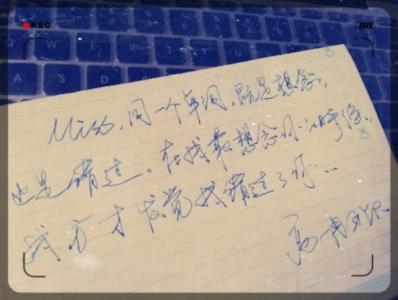 REC
Miss,同一个单词,既是想念,
也是错过。在我最想念你的时候,
我方才发觉我错过了你…